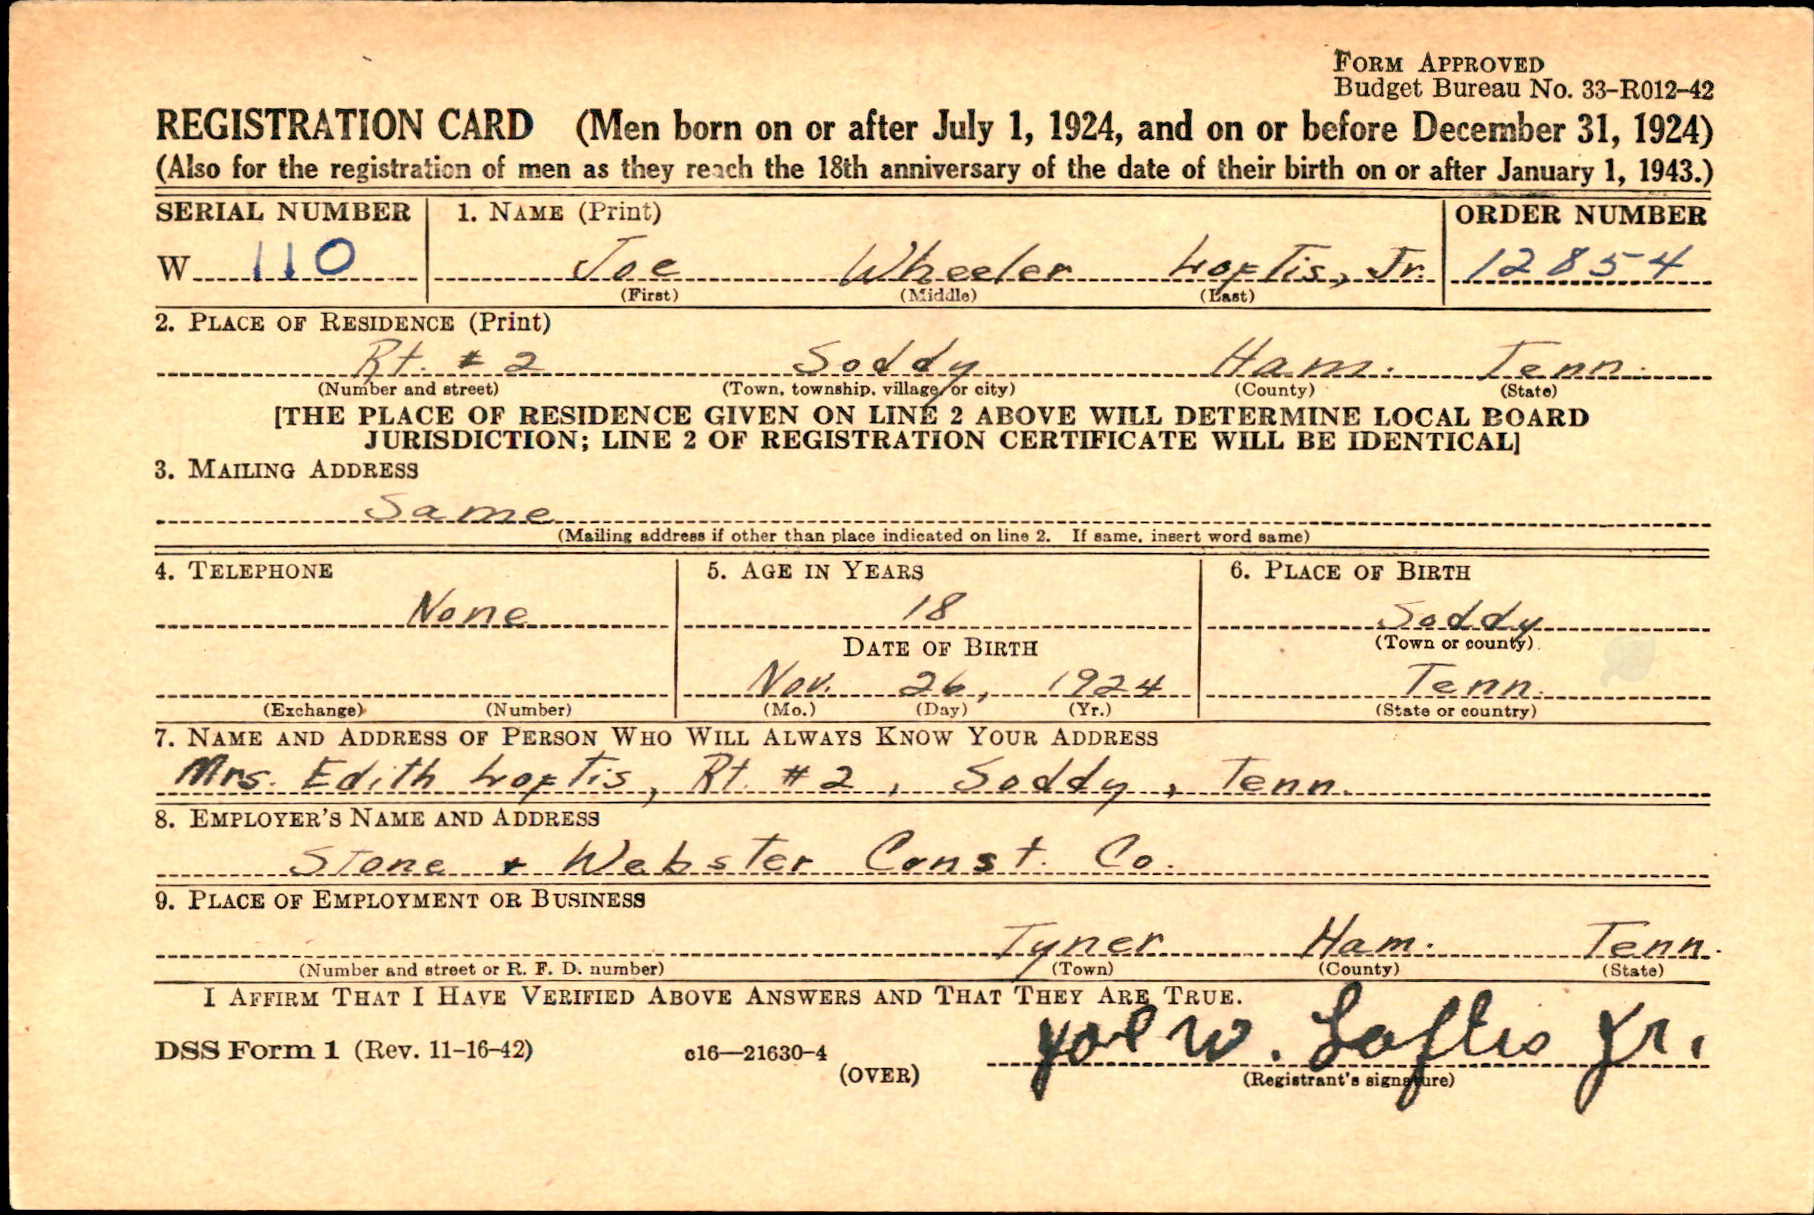 FORM APPROVED
Budget Bureau No. 33-R012-42
REGISTRATION CARD (Men born on or after July 1, 1924, and on or before December 31, 1924)
(Also for the registration of men as they reach the 18th anniversary of the date of their birth on or after January 1, 1943.)
SERIAL NUMBER 1. NAME (Print) ORDER NUMBER
W 110 Joe Wheeler Loftis, Jr. 12854
(First) (Middle) (Last)
2. PLACE OF RESIDENCE (Print)
Rt. # 2 Soddy Ham. Tenn.
(Number and street) (Town, township, village, or city) (County) (State)
[THE PLACE OF RESIDENCE GIVEN ON LINE 2 ABOVE WILL DETERMINE LOCAL BOARD
JURISDICTION; LINE 2 OF REGISTRATION CERTIFICATE WILL BE IDENTICAL]
3. MAILING ADDRESS
Same
(Mailing address if other than place indicated on line 2. If same, insert word same)
4. TELEPHONE 5. AGE IN YEARS 6. PLACE OF BIRTH
None 18 Soddy
DATE OF BIRTH (Town or county)
Nov. 26, 1924 Tenn.
(Exchange) (Number) (Mo.) (Day) (Yr.) (State or country)
7. NAME AND ADDRESS OF PERSON WHO WILL ALWAYS KNOW YOUR ADDRESS
Mrs. Edith Loftis, Rt. #2, Soddy, Tenn.
8. EMPLOYER'S NAME AND ADDRESS
Stone + Webster Const. Co.
9. PLACE OF EMPLOYMENT OR BUSINESS
Tyner Ham. Tenn.
(Number and street or R. F. D. number) (Town) (County) (State)
I AFFIRM THAT I HAVE VERIFIED ABOVE ANSWERS AND THAT THEY ARE TRUE.
DSS Form 1 (Rev. 11-16-42) c16—21630-4 Joe W. Loftis Jr.
(OVER) (Registrant's signature)